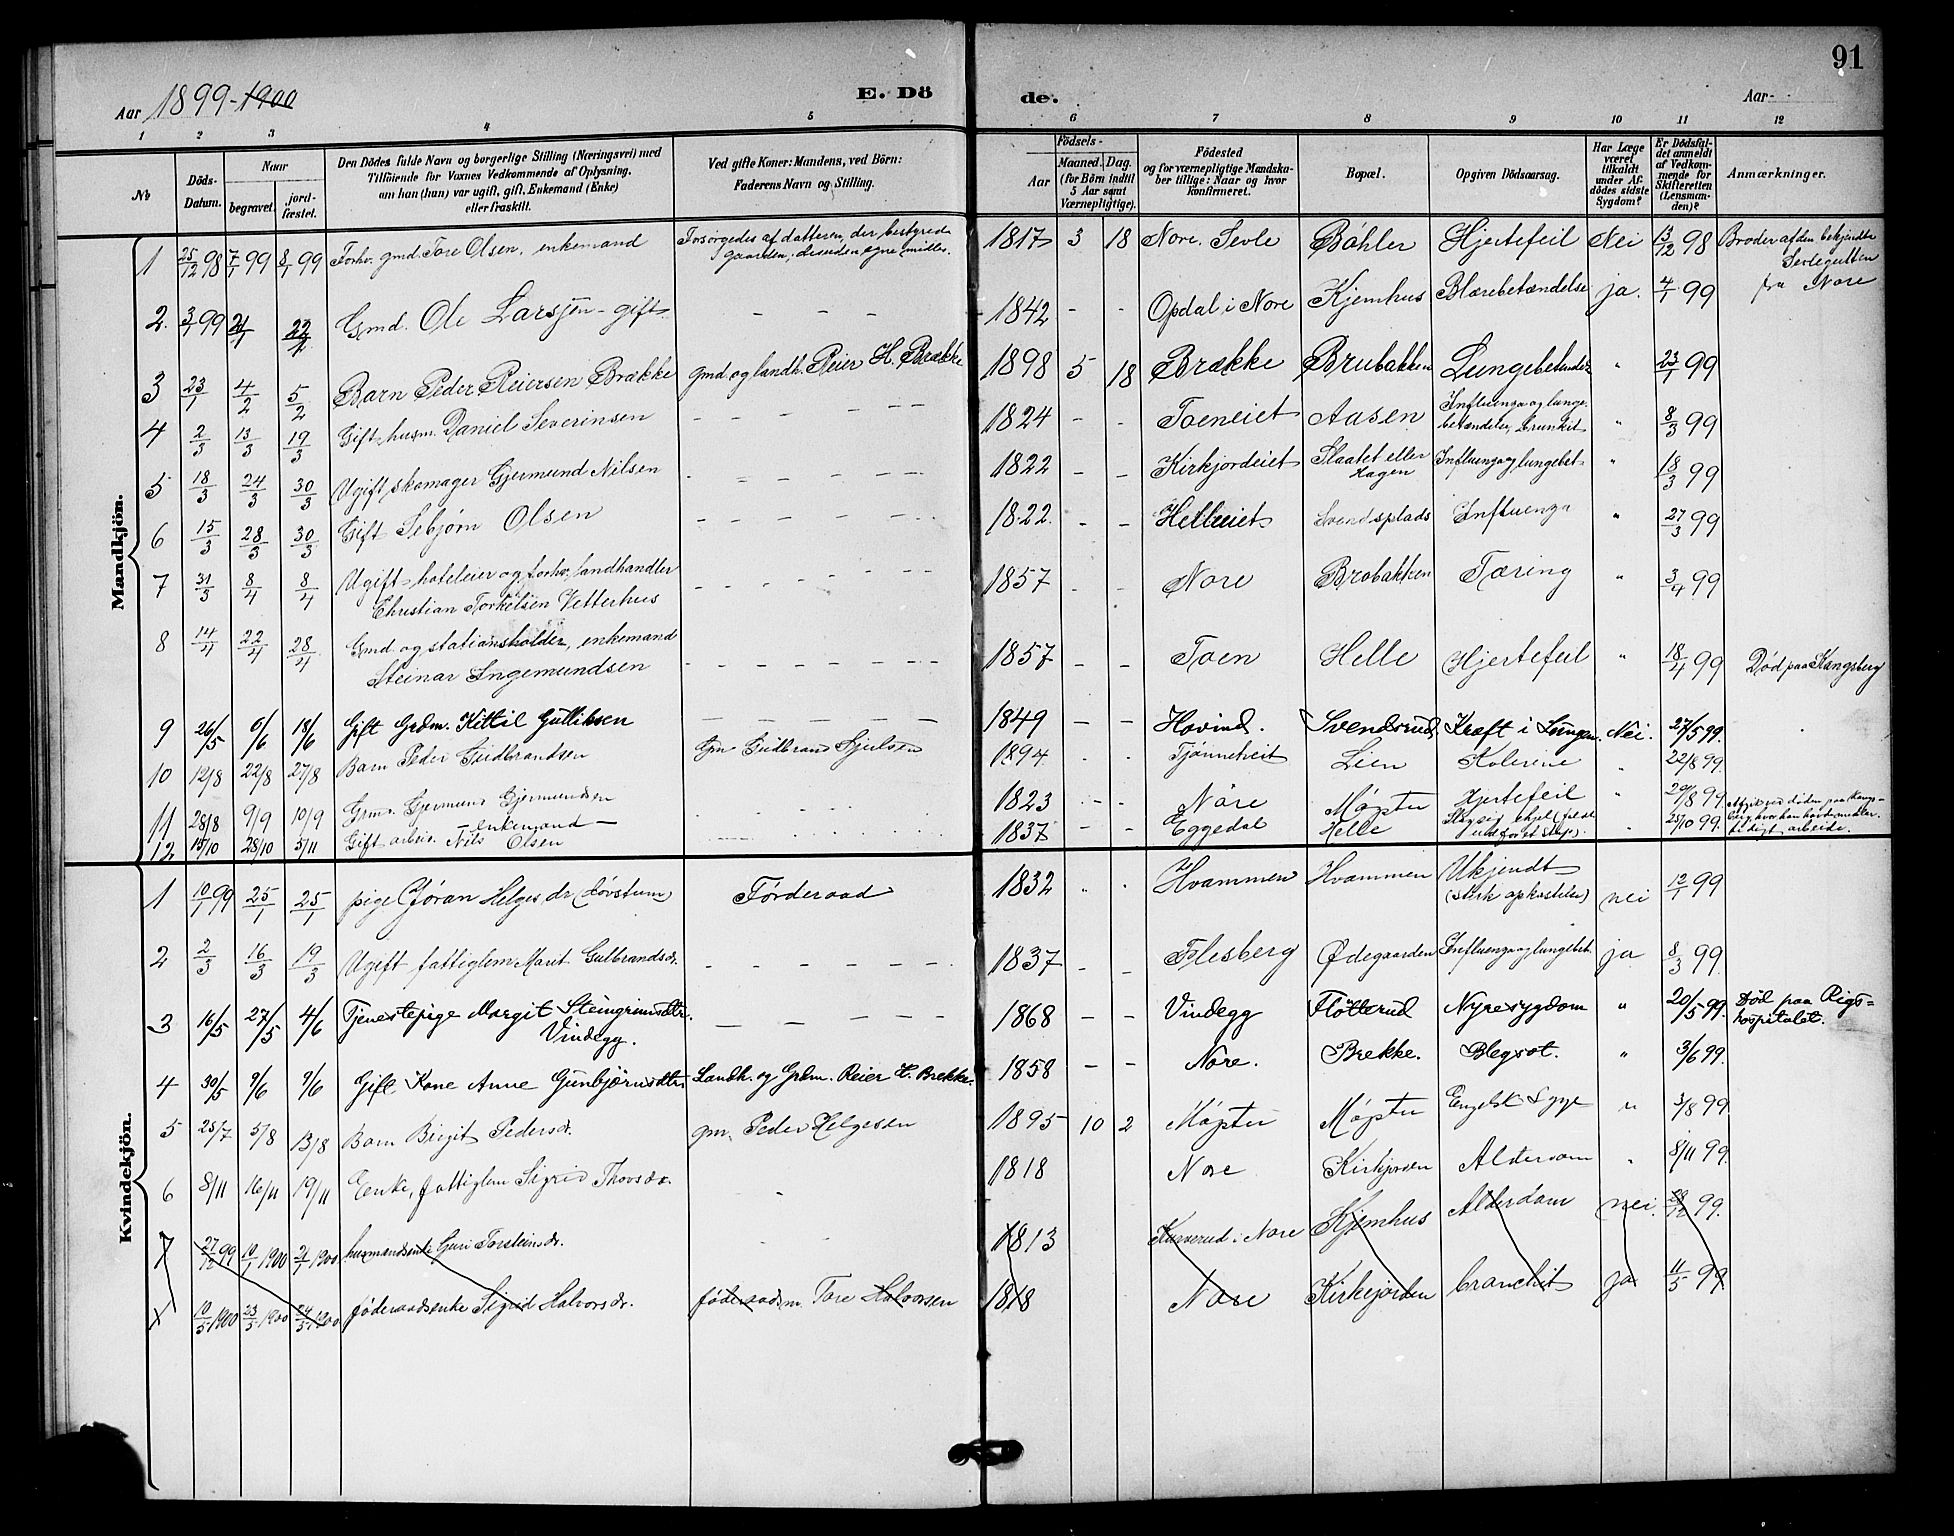 91
Aar 1899-1900
E. Dö
de.
Aar
1 2 3 4 5 6 7 8 9 10 11 12
No
Döds-Datum.
Naar
begravet.
jord-fæstet.
Den Dödes fulde Navn og borgerlige Stilling (Næringsvei) med
Tilföiende for Voxnes Vedkommende af Oplysning.
om han (hun) var ugift, gift, Enkemand (Enke)
eller fraskilt.
Ved gifte Koner: Mandens, ved Börn:
Faderens Navn og Stilling.
Födsels-
Aar
Maaned. Dag.
(for Börn indtil
5 Aar samt
Værnepligtige).
Födested
og for værnepligtige Mandska-
ber tillige: Naar og hvor
konfirmeret.
Bopæl.
Opgiven Dödsaarsag.
Har Læge
været
tilkaldt
under Af-
dödes sidste
Sygdom?
Er Dödsfal-
det anmeldt
af Vedkom-
mende for
Skifteretten
(Lensman-
den)?
Anmærkninger.
Mandkjön.
1 25/12 98 7/1 99 8/1 99 Forhv. gmd. Tore Olsen, enkemand Forsörgedes af datteren, der bestyrede gaarden, desuden egne midler. 1817 3 18 Nore. Sevle Böhler Hjertefeil Nei 13/12 98 Broder af den bekjendte Sevlegutten fra Nore
2. 3/1 99 21/1 22/2 Gmd. Ole Larsen - gift - - - 1842 - - Opdal i Nore Kjemhus Blærebetændelse ja. 4/1 99
3 23/1 4/2 5/2 Barn Peder Reiersen Brække gmd. og landh. Reier H. Brække 1898 5 18 Brække Brubakken Lungebetændelse " 23/1 99
4 2/3 13/3 19/3 Gift husm. Daniel Severinsen - - - - - 1824 - - Toeneiet Aasen Influenza og lunge-betændelse, brunkit " 8/3 99
5 18/3 24/3 30/3 Ugift skomager Gjermund Nilsen - - - - - 1822 - - Kirkjordeiet Slaatet eller Hagen Influenza og lungebet. " 18/3 99
6 15/3 28/3 30/3 Gift Sebjørn Olsen - - - - - 1822. - - Helleeiet Svendsplads Influenza " 27/3 99
7 31/3 8/4 8/4 Ugift hoteleier og forhv. landhandler
Christian Torkelsen Vetterhus - - - - - 1857 - - Nore Brobakken Tæring " 3/4 99
8 14/4 22/4 28/4 Gmd. og stationsholder, enkemand
Steinar Ingemundsen - - - - - 1857 - - Toen Helle Hjertefeil " 18/4 99 Död paa Kongsberg
9 26/5 6/6 18/6 Gift Grdm. Kittil Gulliksen - - - - - 1849 - - Hovind. Svendsrud Kræft i Lungen. Nei. 27/5 99.
10 12/8 22/8 27/8 Barn Peder Gudbrandsen Gm Gudbrand 1894 Tjönneheit Lien Kolerine " 22/8 99.
11 28/8 9/9 10/9 Grm. Gjermund Gjermundsen - enkemand - 1823 - - Nore Møpter Hjertefeil " 29/8 99
12 15/10 28/10 5/11 Gift arbeid. Nils Olsen 1837 Eggedal Helle " 25/10 99.
Kvindekjön.
1 10/1 99 25/1 25/1 pige Gjöran Helgesdr. (døvstum) Førderaad 1832 " " Hvammen Hvammen Ukjendt
(sterk opkastelse) nei 12/1 99
2 2/3 16/3 19/3 Ugift fattiglem Marit Gulbrandsdr. - - - - - 1837 - - Flesberg Ødegaarden Influenza og lungebet. ja 8/3 99
3 16/5 27/5 4/6 Tjenestepige Margit Steingrimsdtr.
Vindegg. - - - - - 1868 - - Vindegg Fløtterud Nyresygdom " 20/5 99. Död paa Rigs=
hospitalet.
4 30/5 9/6 9/6 Gift Kone Anne Gunbjørnsdtr. Landh. og Grdm. Reier H. Brekke. 1858 - - Nore. Brekke. Blegsot. " 3/6 99.
5 25/7 5/8 13/8 Barn Birgit Pedersdr. gm. Peder Helgesen 1895 10 2 Møpter Møpter Engelsk Syge " 3/8 99.
6 8/11 16/11 19/11 Enke, fattiglem Sigrid Thorsdr. 1818 Nore Kirkjorden Alderdom " 8/11 99.
7 27/12 99 10/1 1900 21/1 1900 husmandsenke Guri Torsteinsdr. 1813 Kurverud i Nore Kjemhus Alderdom nei. 28/12 99.
10/5 1900 23/5 1900 24/5 1900 föderaadsenke Sigrid Halvorsdr. föderaadsm. Tore Halvorsen 1818 Nore Kirkejorden bronchit ja 11/5 99